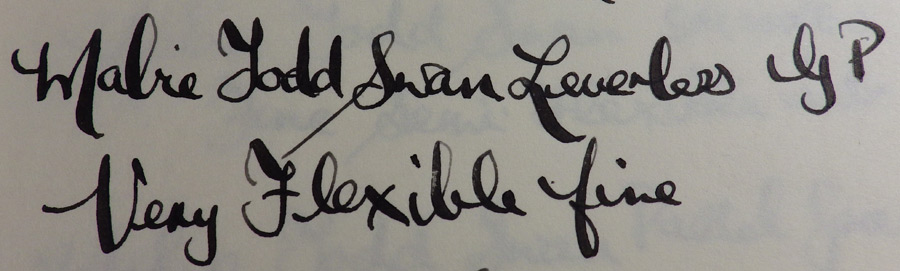 Mabie Todd Swan Leverless
Very Flexible fine